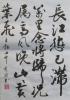 長江悲已滞
萬里念將歸況
屬高風晚山山黄
葉飛